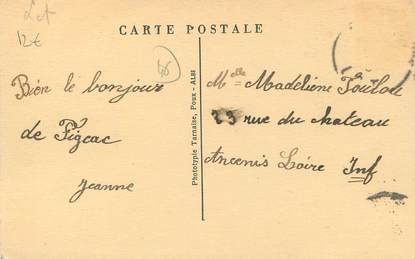 CARTE POSTALE
Lot
12€
46
Bien le bonjour
de Figeac
Jeanne
Phototypie Tarnaise, Poux - Albi
Melle Madeleine Toulou
23 rue du chateau
Ancenis Loire Inf